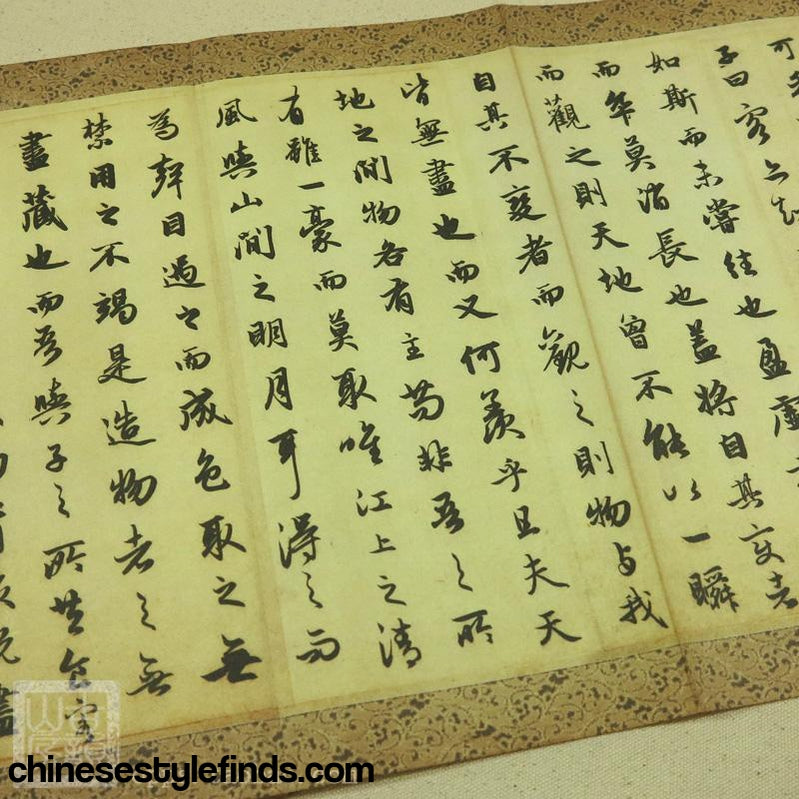 可
子曰客亦知
如斯而未嘗往也盈虛
而卒莫消長也蓋將自其變者
而觀之則天地曾不能以一瞬
自其不變者而觀之則物与我
皆無盡也而又何羨乎且夫天
地之間物各有主苟非吾之所
有雖一豪而莫取唯江上之清
風與山間之明月耳得之而
為聲目遇之而成色取之無
禁用之不竭是造物者之無
盡藏也而吾與子之所共食客
chinesestylefinds.com